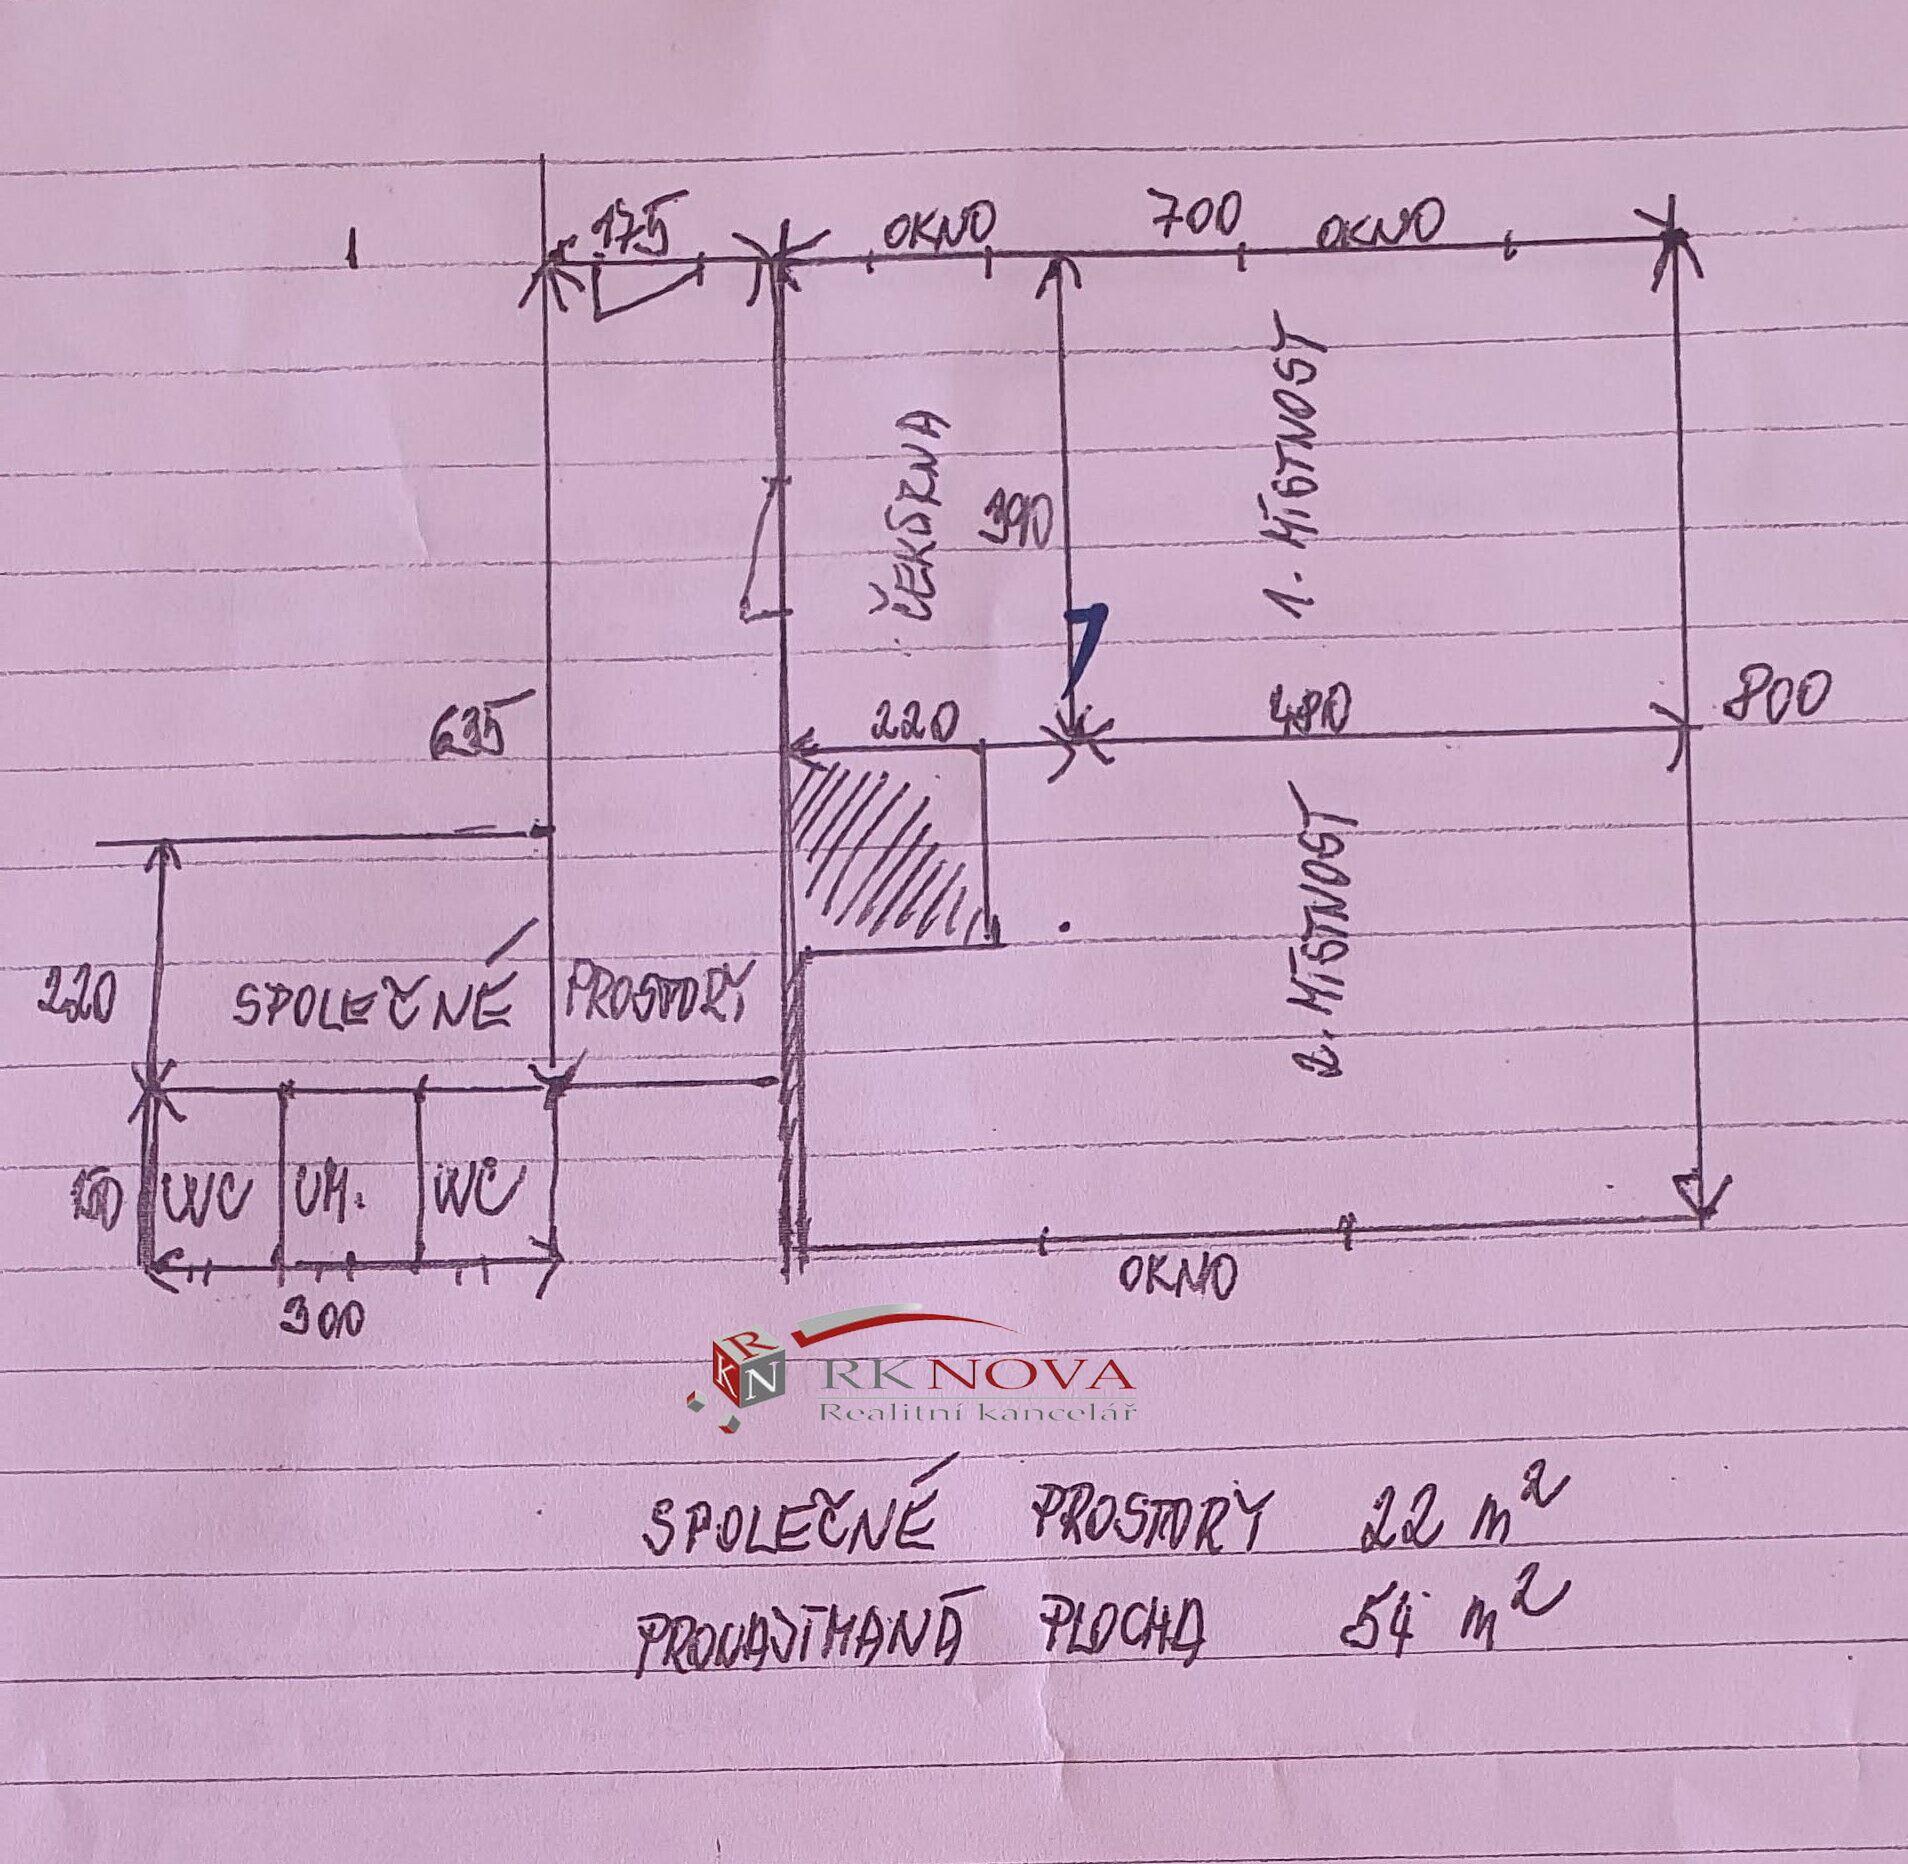 175
OKNO
700
OKNO
ČEKÁRNA
390
1. MÍSTNOST
635
220
480
800
2. MÍSTNOST
220
SPOLEČNÉ PROSTORY
150
WC
UM.
WC
300
OKNO
RKN
RK NOVA
Realitní kancelář
SPOLEČNÉ PROSTORY 22 m²
PRONAJÍMANÁ PLOCHA 54 m²